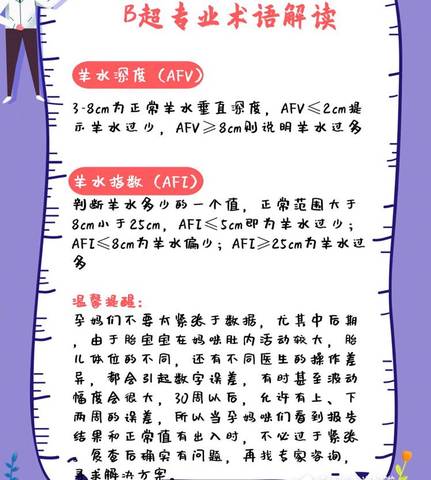 B超专业术语解读
羊水深度（AFV）
3-8cm为正常羊水垂直深度，AFV≤2cm提
示羊水过少，AFV≥8cm则说明羊水过多
羊水指数（AFI）
判断羊水多少的一个值，正常范围大于
8cm小于25cm，AFI≤5cm即为羊水过少；
AFI≤8cm为羊水偏少；AFI≥25cm为羊水过
多
温馨提醒：
孕妈们不要太紧张于数据，尤其中后期
，由于胎宝宝在妈咪肚内活动较大，胎
儿体位的不同，还有不同医生的操作差
异，都会引起数字误差，有时甚至波动
幅度会很大，30周以后，允许有上、下
两周的误差，所以当孕妈咪们看到报告
结果和正常值有出入时，不必过于紧张
、复查后确实有问题，再找专家咨询，
寻求解决方案。